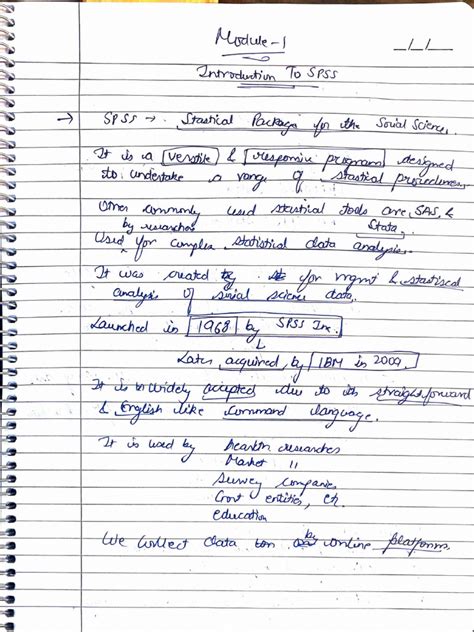 Module-1
_/_/_
Introduction To SPSS
→ SPSS → Stastical Package for the Social Science
It is a versatile & responsive program designed
to undertake a range of stastical procedures
Other commonly used stastical tools are, SAS, &
Stata.
by researches
Used for complex statistical data analysis.
It was created by for mgmt & stastiscal
analysis of social science data.
Launched in 1968 by SPSS Inc.
Later acquired by IBM in 2009.
It is widely accepted due to its straightforward
& English like command language.
It is used by Health researches
Market "
Survey companies
Govt entities, etc.
education
by
We collect data on online platforms.